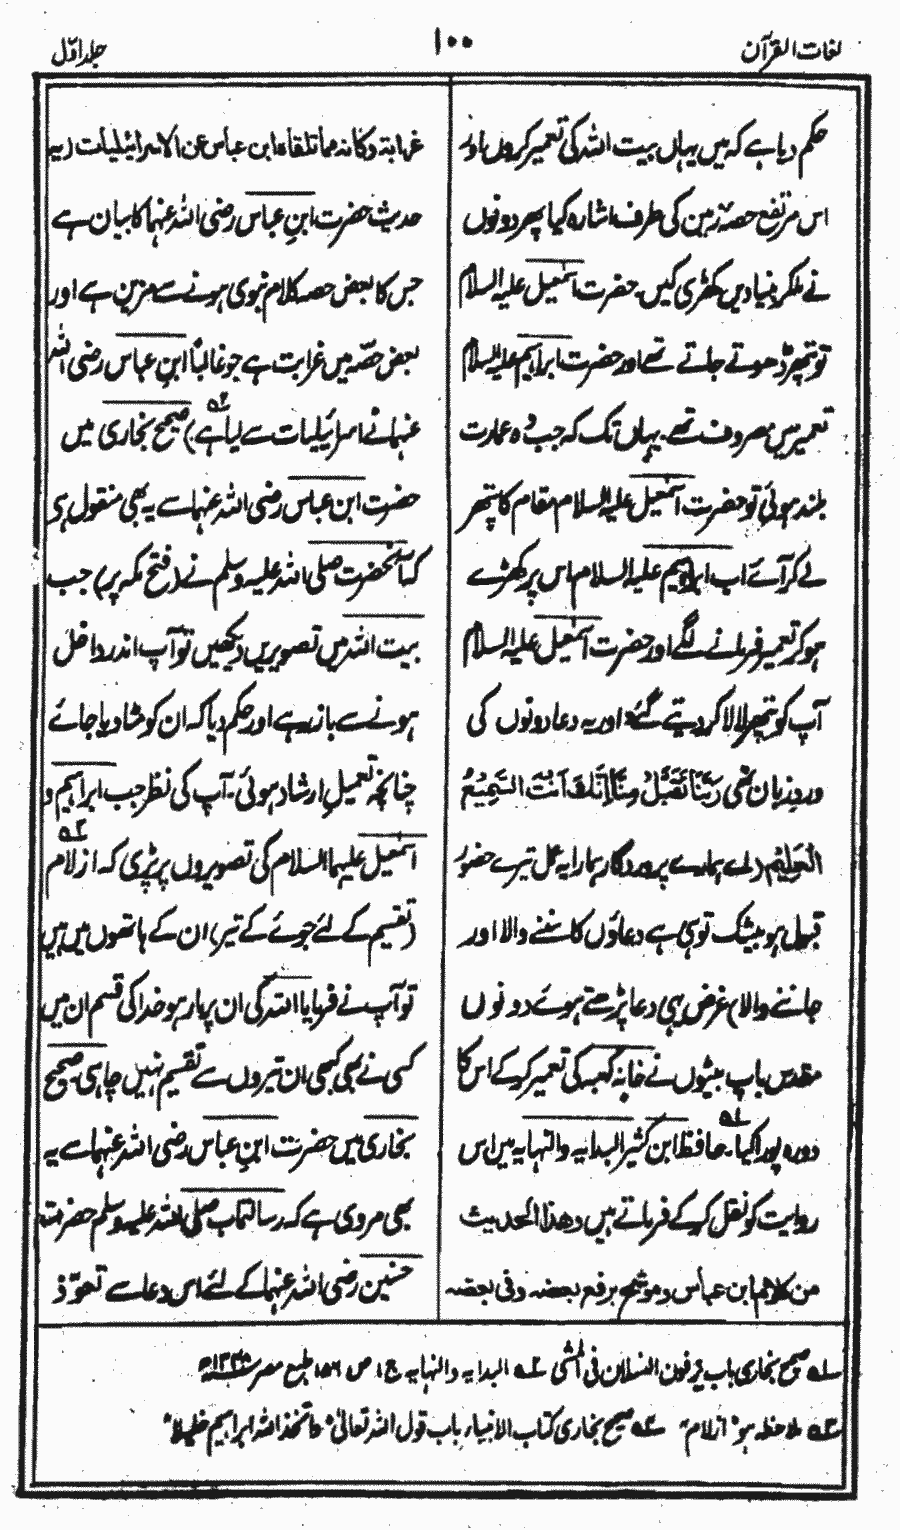 لغات القرآن
۱۰۰
جلد اوّل
حکم دیا ہے کہ میں یہاں بیت اللہ کی تعمیر کروں اور
اس مرتفع حصہ زمین کی طرف اشارہ کیا پھر دونوں
نے ملکر بنیادیں کھڑی کیں۔ حضرت اسمٰعیل علیہ السلام
تو پتھر ڈھوتے جاتے تھے اور حضرت ابراہیم علیہ السلام
تعمیر میں مصروف تھے۔ یہاں تک کہ جب وہ عمارت
بلند ہوئی تو حضرت اسمٰعیل علیہ السلام مقام کا پتھر
لے کر آئے اب ابراہیم علیہ السلام اس پر کھڑے
ہو کر تعمیر فرمانے لگے اور حضرت اسمٰعیل علیہ السلام
آپ کو پتھر لا لا کر دیتے گئے اور یہ دعا دونوں کی
ورد زبان تھی رَبَّنَا تَقَبَّلْ مِنَّا إِنَّكَ أَنْتَ السَّمِیْعُ
الْعَلِیْمُ (اے ہمارے پروردگار ہمارا یہ عمل تیرے حضور
قبول ہو بیشک تو ہی ہے دعاؤں کا سننے والا اور
جاننے والا) غرض یہی دعا پڑھتے ہوئے دونوں
مقدس باپ بیٹوں نے خانہ کعبہ کی تعمیر کر کے اس کا
دورہ پورا کیا۔ حافظ ابن کثیر البدایہ والنہایہ میں اس
روایت کو نقل کر کے فرماتے ہیں وھذا الحدیث
من کلام ابن عباس وموشح برفع بعضہ وفی بعضہ
غرابة وکانہ مما تلقاہ ابن عباس عن الاسرائیلیات (یہ
حدیث حضرت ابن عباس رضی اللہ عنہما کا بیان ہے
جس کا بعض حصہ کلام نبوی ہونے سے مزین ہے اور
بعض حصّہ میں غرابت ہے جو غالباً ابن عباس رضی اللہ
عنہما نے اسرائیلیات سے لیا ہے۔) صحیح بخاری میں
حضرت ابن عباس رضی اللہ عنہما سے یہ بھی منقول ہے
کہ آنحضرت صلی اللہ علیہ وسلم نے (فتح مکہ پر) جب
بیت اللہ میں تصویریں دیکھیں تو آپ اندر داخل
ہونے سے باز رہے اور حکم دیا کہ ان کو مٹا دیا جائے
چنانچہ تعمیل ارشاد ہوئی۔ آپ کی نظر جب ابراہیم و
اسمٰعیل علیہما السلام کی تصویروں پر پڑی کہ ازلام
(تقسیم کے لئے جوئے کے تیر) ان کے ہاتھوں میں ہیں
تو آپ نے فرمایا اللہ کی ان پر مار ہو خدا کی قسم ان میں
کسی نے بھی کبھی ان تیروں سے تقسیم نہیں چاہی۔ صحیح
بخاری میں حضرت ابن عباس رضی اللہ عنہما سے یہ
بھی مروی ہے کہ رسالتمآب صلی اللہ علیہ وسلم حضرت
حسنین رضی اللہ عنہما کے لئے اس دعا سے تعوّذ
۱ صحیح بخاری باب یزفون النسلان فی المشی ۲ البدایہ والنہایہ ج۱ ص ۱۵۶ طبع مصر
۳ ملاحظہ ہو "ازلام" ۴ صحیح بخاری کتاب الانبیاء باب قول اللہ تعالیٰ واتخذ اللہ ابراہیم خلیلا